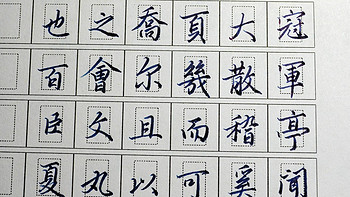 也之喬頁大冠
百會尔幾散軍
臣文且而稽亭
夏丸以可奚聞